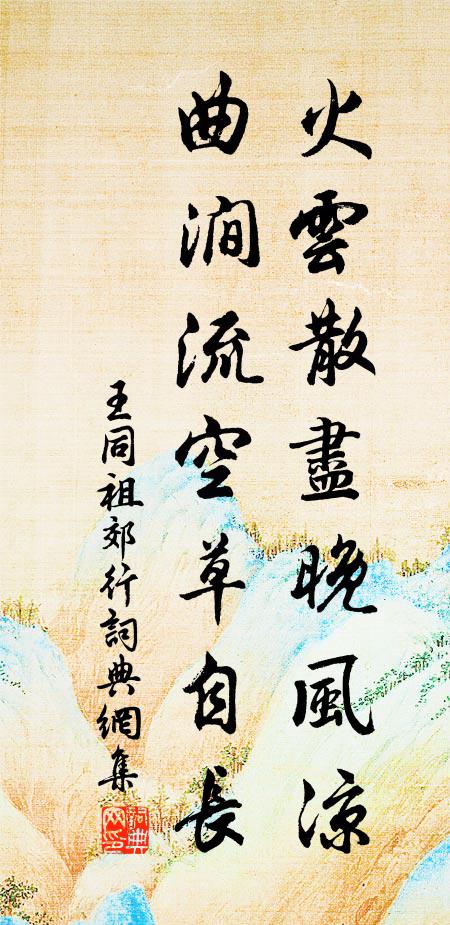 火雲散盡晚風凉
曲澗流空草自長
王同祖郊行詞典網集
詞典
网印